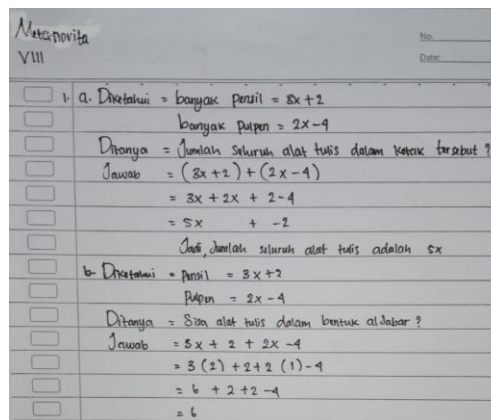 Metanovita
No.
VIII
Date:
1. a. Diketahui = banyak pensil = 3x+2
banyak pulpen = 2x-4
Ditanya = Jumlah seluruh alat tulis dalam kotak tersebut ?
Jawab = (3x+2) + (2x-4)
= 3x + 2x + 2-4
= 5x + -2
Jadi, Jumlah seluruh alat tulis adalah 5x
b. Diketahui = pensil = 3x+2
Pulpen = 2x - 4
Ditanya = Sisa alat tulis dalam bentuk aljabar ?
Jawab = 3x + 2 + 2x -4
= 3 (2) +2+2 (1)-4
= 6 + 2 +2 -4
= 6